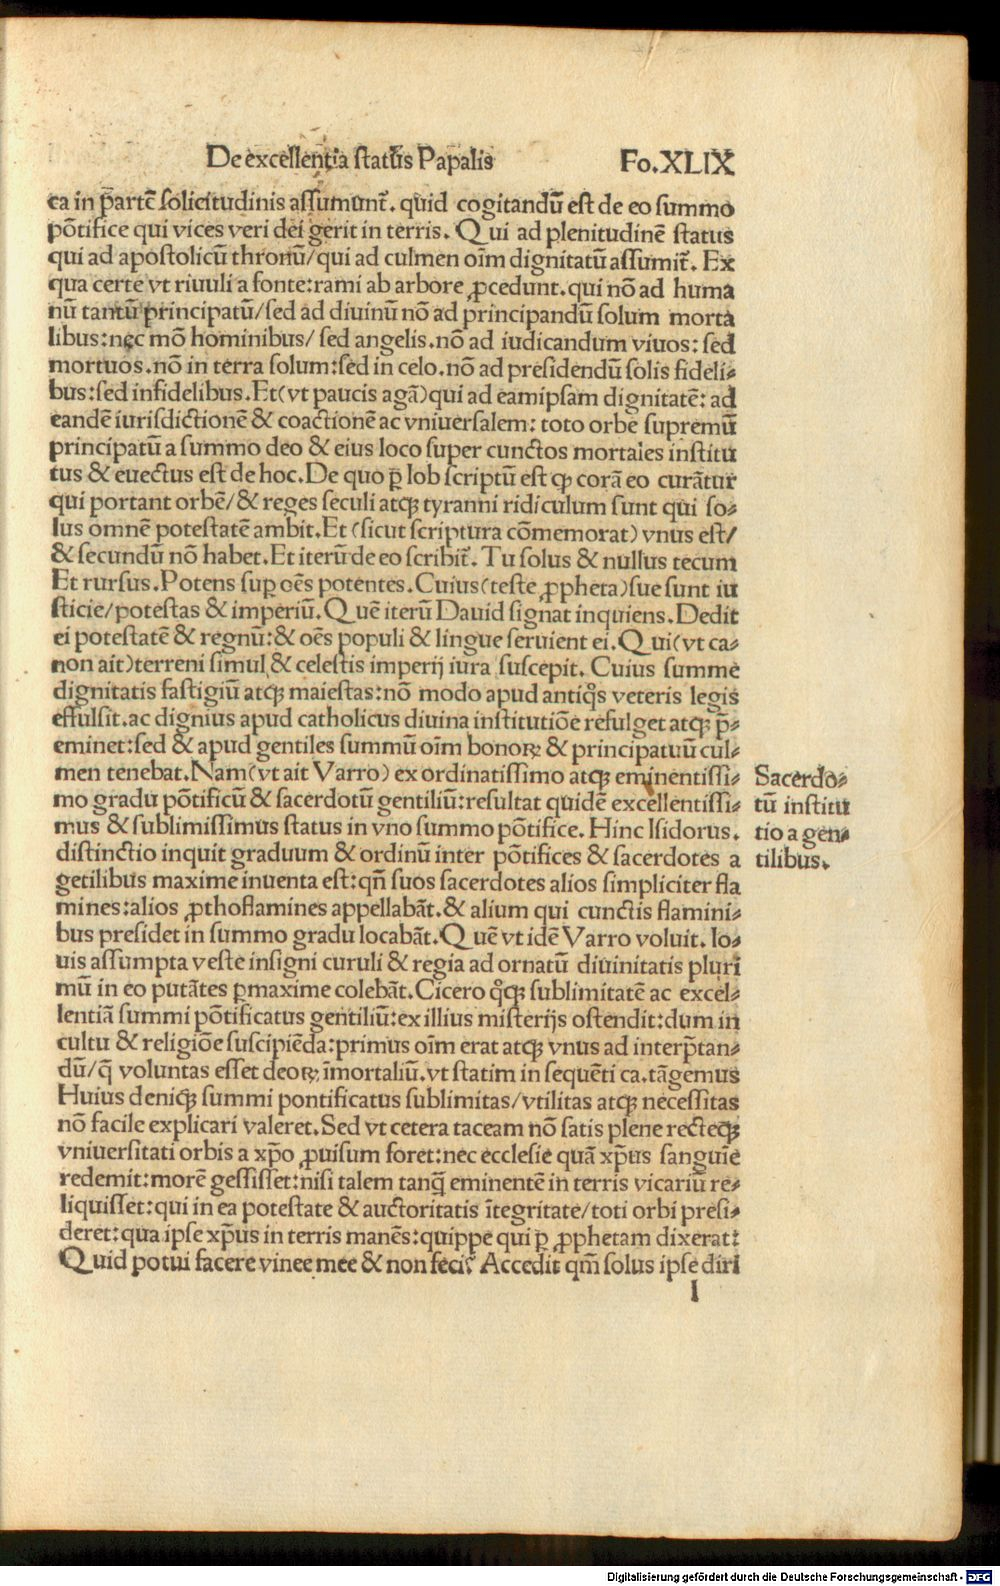 De excellentia status Papalis Fo.XLIX
ea in p̄artē solicitudinis assumunt̄. quid cogitandū est de eo summo
pōtifice qui vices veri dei gerit in terris. Qui ad plenitudinē status
qui ad apostolicū thronū/qui ad culmen oīm dignitatū assumit̄. Ex
qua certe vt riuuli a fonte:rami ab arbore ꝓcedunt.qui nō ad huma
nū tantū principatū/sed ad diuinū nō ad principandū solum morta
libus:nec mō hominibus/ sed angelis.nō ad iudicandum viuos: sed
mortuos.nō in terra solum:sed in celo.nō ad presidendū solis fideli⸗
bus:sed infidelibus.Et(vt paucis agā)qui ad eamipsam dignitatē: ad
eandē iurisdictionē & coactionē ac vniuersalem: toto orbe supremū
principatū a summo deo & eius loco super cunctos mortales institu
tus & euectus est de hoc.De quo p̄ Iob scriptū est ꝙ corā eo curātur
qui portant orbē/& reges seculi atqꝫ tyranni ridiculum sunt qui so⸗
lus omnē potestatē ambit.Et (sicut scriptura cōmemorat) vnus est/
& secundū nō habet.Et iterū de eo scribit̄. Tu solus & nullus tecum
Et rursus.Potens suꝑ oēs potentes.Cuius(teste ꝓpheta)sue sunt iu
sticie/potestas & imperiū.Quē iterū Dauid signat inquiens.Dedit
ei potestatē & regnū:& oēs populi & lingue seruient ei.Qui(vt ca⸗
non ait)terreni simul & celestis imperij iura suscepit. Cuius summe
dignitatis fastigiū atqꝫ maiestas:nō modo apud antiq̊s veteris legis
effulsit.ac dignius apud catholicus diuina institutiōe refulget atqꝫ p̄⸗
eminet:sed & apud gentiles summū oīm bonoꝝ & principatuū cul⸗
men tenebat.Nam(vt ait Varro) ex ordinatissimo atqꝫ eminentissi⸗
mo gradu pōtificū & sacerdotū gentiliū:resultat quidē excellentissi⸗
mus & sublimissimus status in vno summo pōtifice. Hinc Isidorus.
distinctio inquit graduum & ordinū inter pōtifices & sacerdotes a
getilibus maxime inuenta est:qn̄ suos sacerdotes alios simpliciter fla
mines:alios ꝓthoflamines appellabāt.& alium qui cunctis flamini⸗
bus presidet in summo gradu locabāt.Quē vt idē Varro voluit. Io⸗
uis assumpta veste insigni curuli & regia ad ornatū diuinitatis pluri
mū in eo putātes ꝑmaxime colebāt.Cicero q̊qꝫ sublimitatē ac excel⸗
lentiā summi pōtificatus gentiliū:ex illius misterijs ostendit:dum in
cultu & religiōe suscipiēda:primus oīm erat atqꝫ vnus ad interp̄tan⸗
dū/q̄ voluntas esset deoꝝ īmortaliū.vt statim in sequēti ca.tāgemus
Huius deniqꝫ summi pontificatus sublimitas/vtilitas atqꝫ necessitas
nō facile explicari valeret.Sed vt cetera taceam nō satis plene recteqꝫ
vniuersitati orbis a xp̄o ꝓuisum foret:nec ecclesie quā xp̄us sanguīe
redemit:morē gessisset:nisi talem tanq̄ eminentē in terris vicariū re⸗
liquisset:qui in ea potestate & auctoritatis ītegritate/toti orbi presi⸗
deret:qua ipse xp̄us in terris manēs:quippe qui p̄ ꝓphetam dixerat:
Quid potui facere vinee mee & non feci? Accedit qm̄ solus ipse diri
I
Sacerdo⸗
tū institu
tio a gen⸗
tilibus.
Digitalisierung gefördert durch die Deutsche Forschungsgemeinschaft - DFG